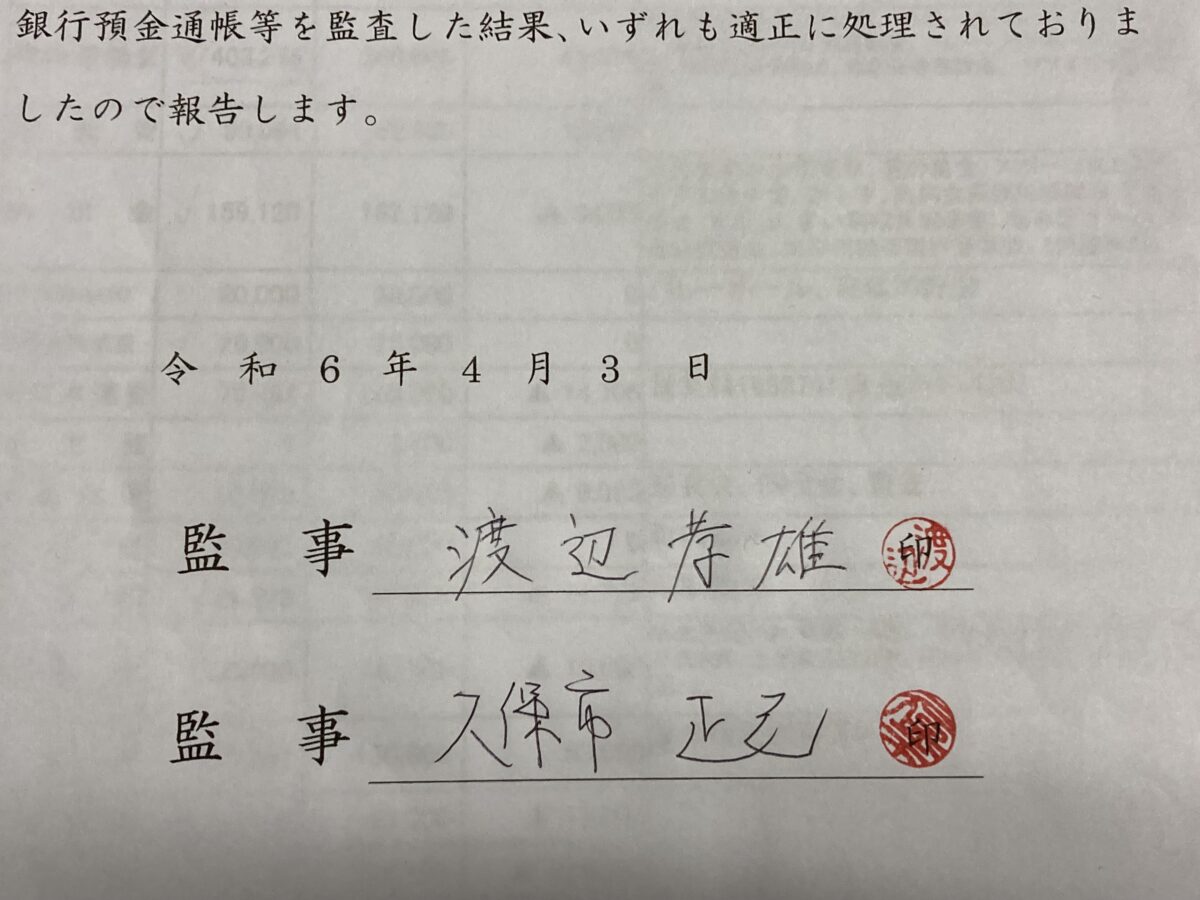 銀行預金通帳等を監査した結果、いずれも適正に処理されておりま
したので報告します。
令和6年4月3日
監事 渡辺孝雄 印
監事 久保市 正 印